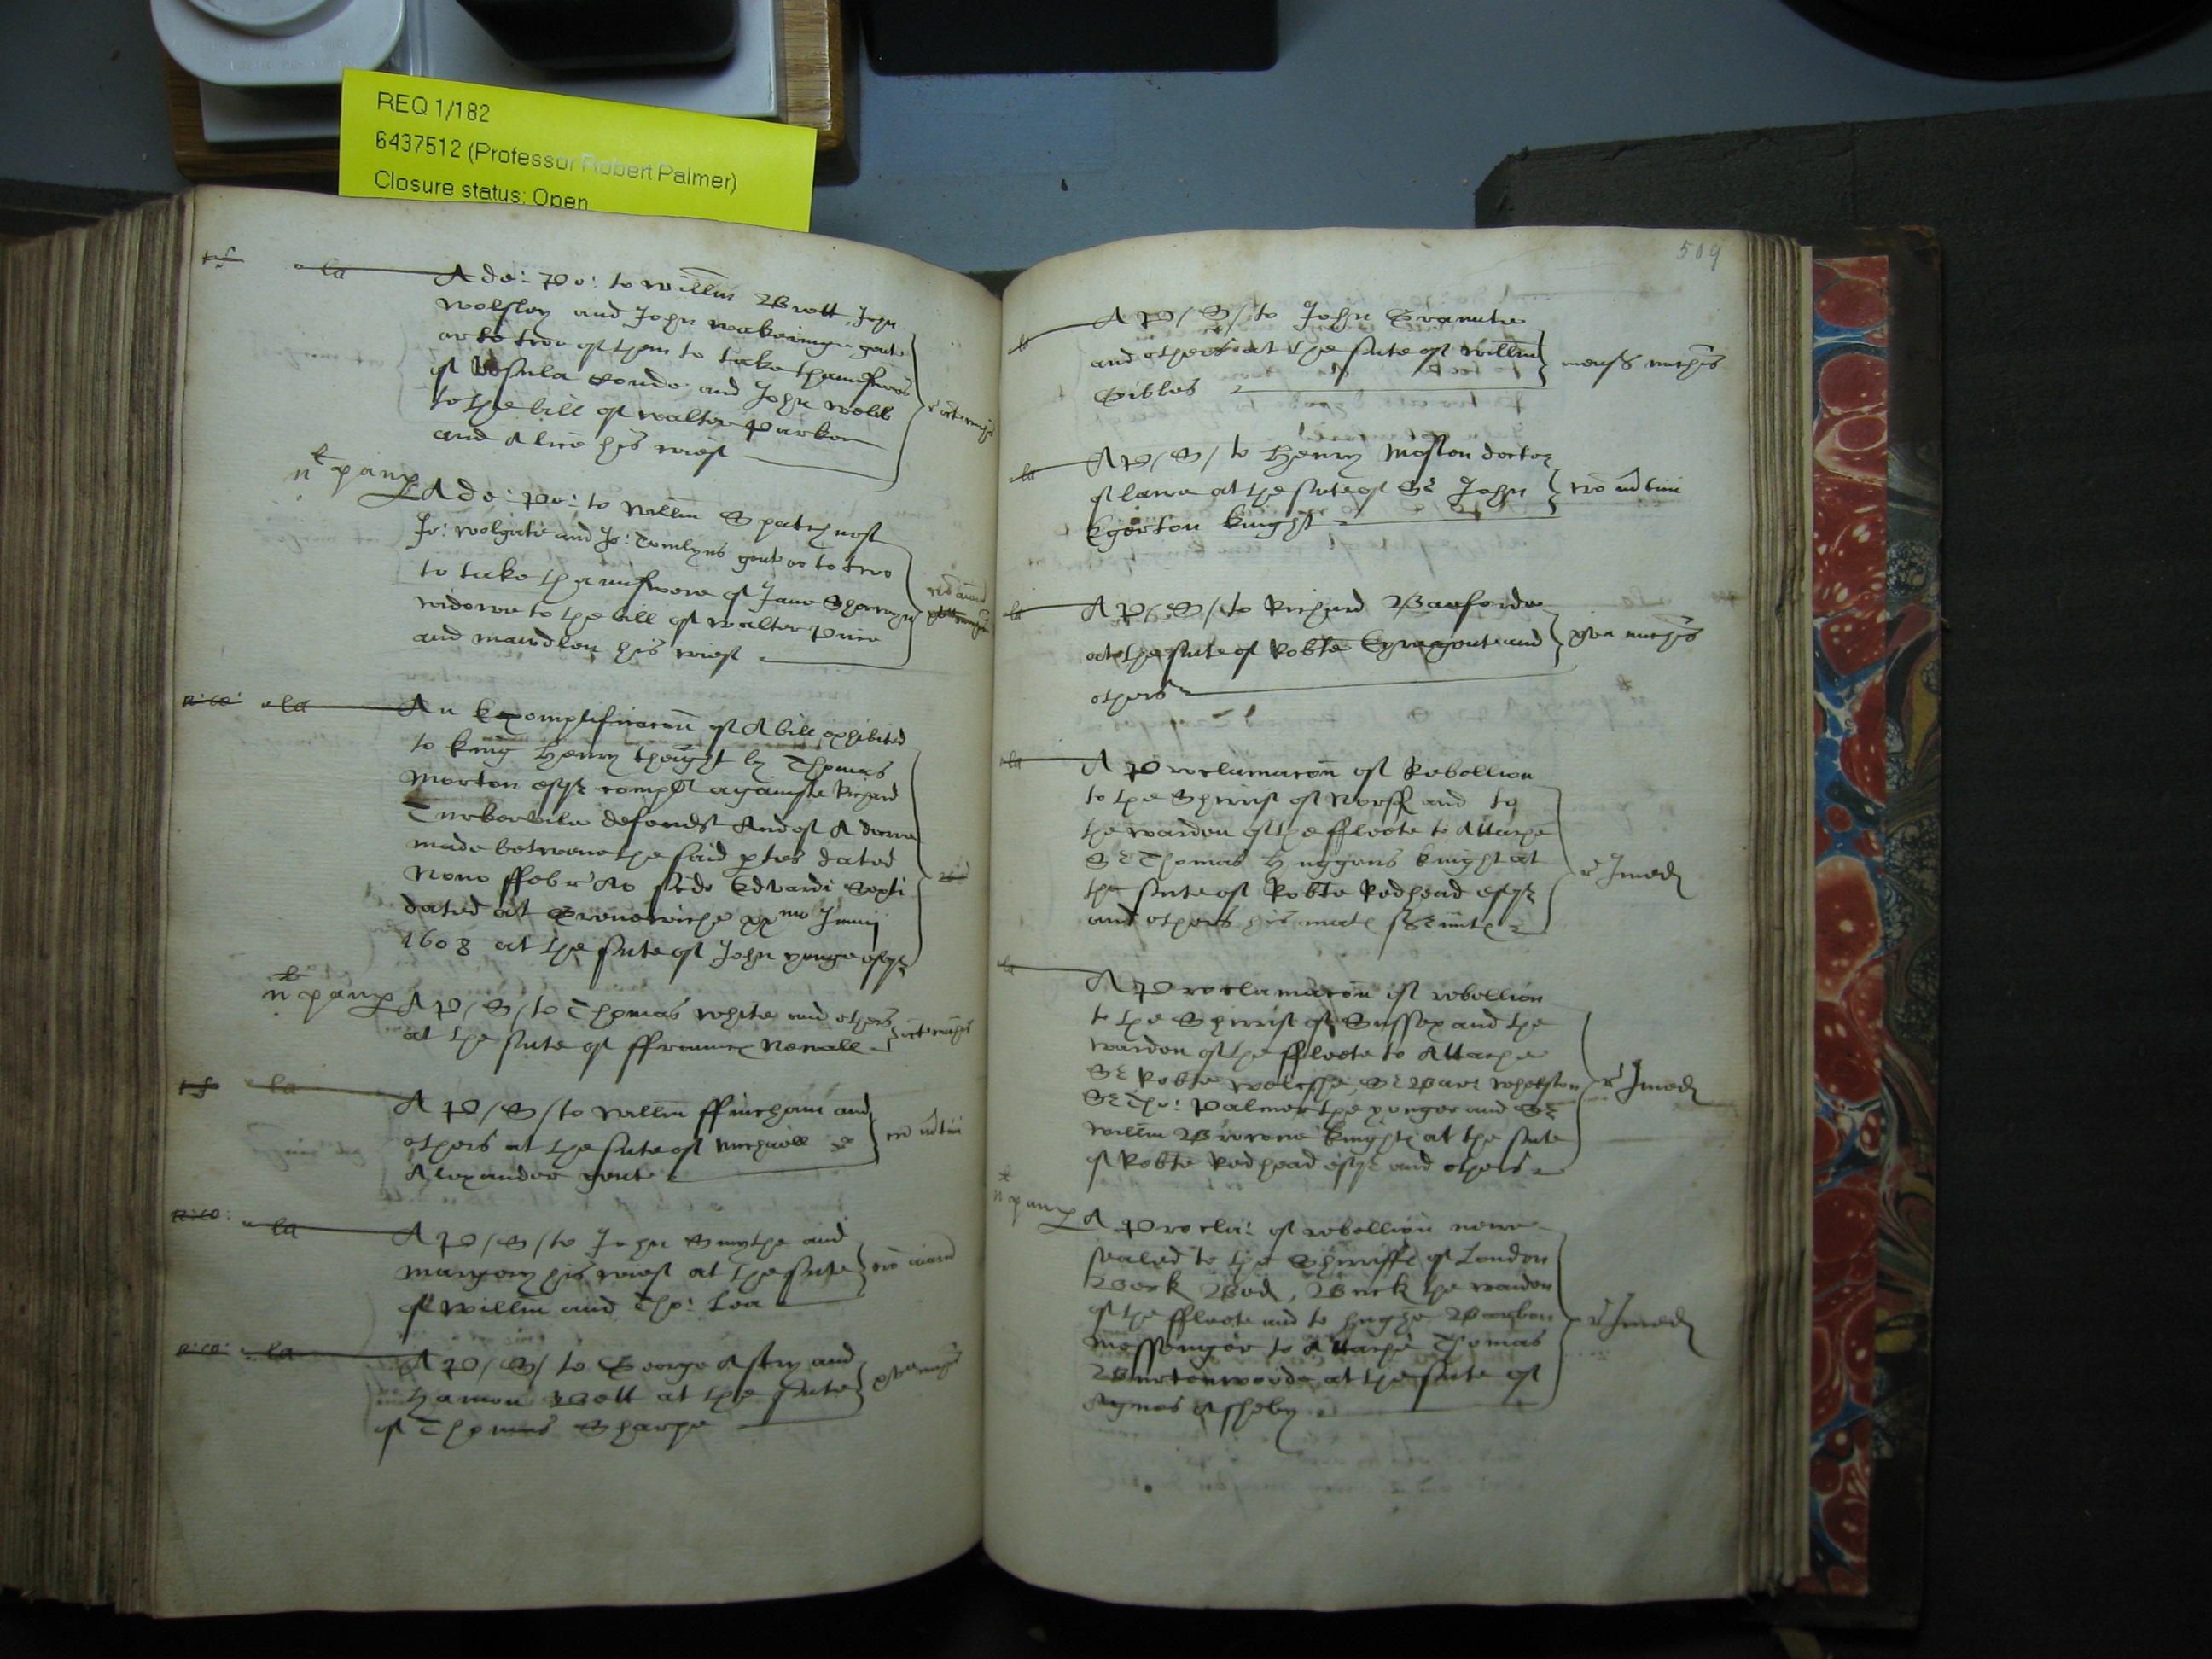 REQ 1/182
6437512 (Professor Robert Palmer)
Closure status: Open
la A de: Po: to Willm Brett John
Wolsley and John Wakeringe gent
or to two of them to take thansweres
of Vrsula and John Webb
to the bill of Walter Parker
and Alice his wief
A de: Po: to Willm
Jo: Wolgate and Jo: Tomlyns gent or to two
to take thanswere of Jane
widowe to the bill of Walter Price
and Mawdlen his wief
la An Exemplificacon of A bill exhibited
to king Henry theight by Thomas
Morton esqr compl againste Richard
Turbervile defendt And of A decree
made betweene the said ptes dated
Nono ffebr Ao scdo Edwardi Sexti
dated at Grenewiche xxmo Junij
1608 at the sute of John yonge esqr
n paup A P/S/ to Thomas White and others
at the sute of ffrauncs Newall
la A P/S/ to Willm ffincham and
others at the sute of Michaell
Alexander gent
la A P/S/ to John Smythe and
Margery his wief at the sute
of Willm and Tho: Lea
la A P/S/ to George Astry and
Hamon Bett at the sute
of Thomas Sharpe
509
la A P/S/ to John
and others at the sute of Willm mens michis
Gibbes
la A P/S/ to Henry Moston doctor
of lawe at the sute of Sr John
Egerton knight
la A P/S/ to Richard Barforde
at the sute of Robte and
others
la A Proclamacon of Rebellion
to the Shirrif of Norff and to
the warden of the ffleete to Attache
Sr Thomas Huggens knight at r Imed
the sute of Robte Redhead esqr
and others his mats
la A Proclamacon of rebellion
to the Shirrif of Sussex and the
warden of the ffleete to Attache
Sr Robte Sr Bar: Whetston r Imed
Sr Tho: Palmer the yonger and Sr
Willm Browne knights at the sute
of Robte Redhead esqr and others
n paup A Procla: of rebellion newe
sealed to the Shirriffs of London
Berk Bed, Buck the warden
of the ffleete and to Hughe Barbon r Imed
messenger to Attache Thomas
Burtonwoode at the sute of
Agnes Asheby